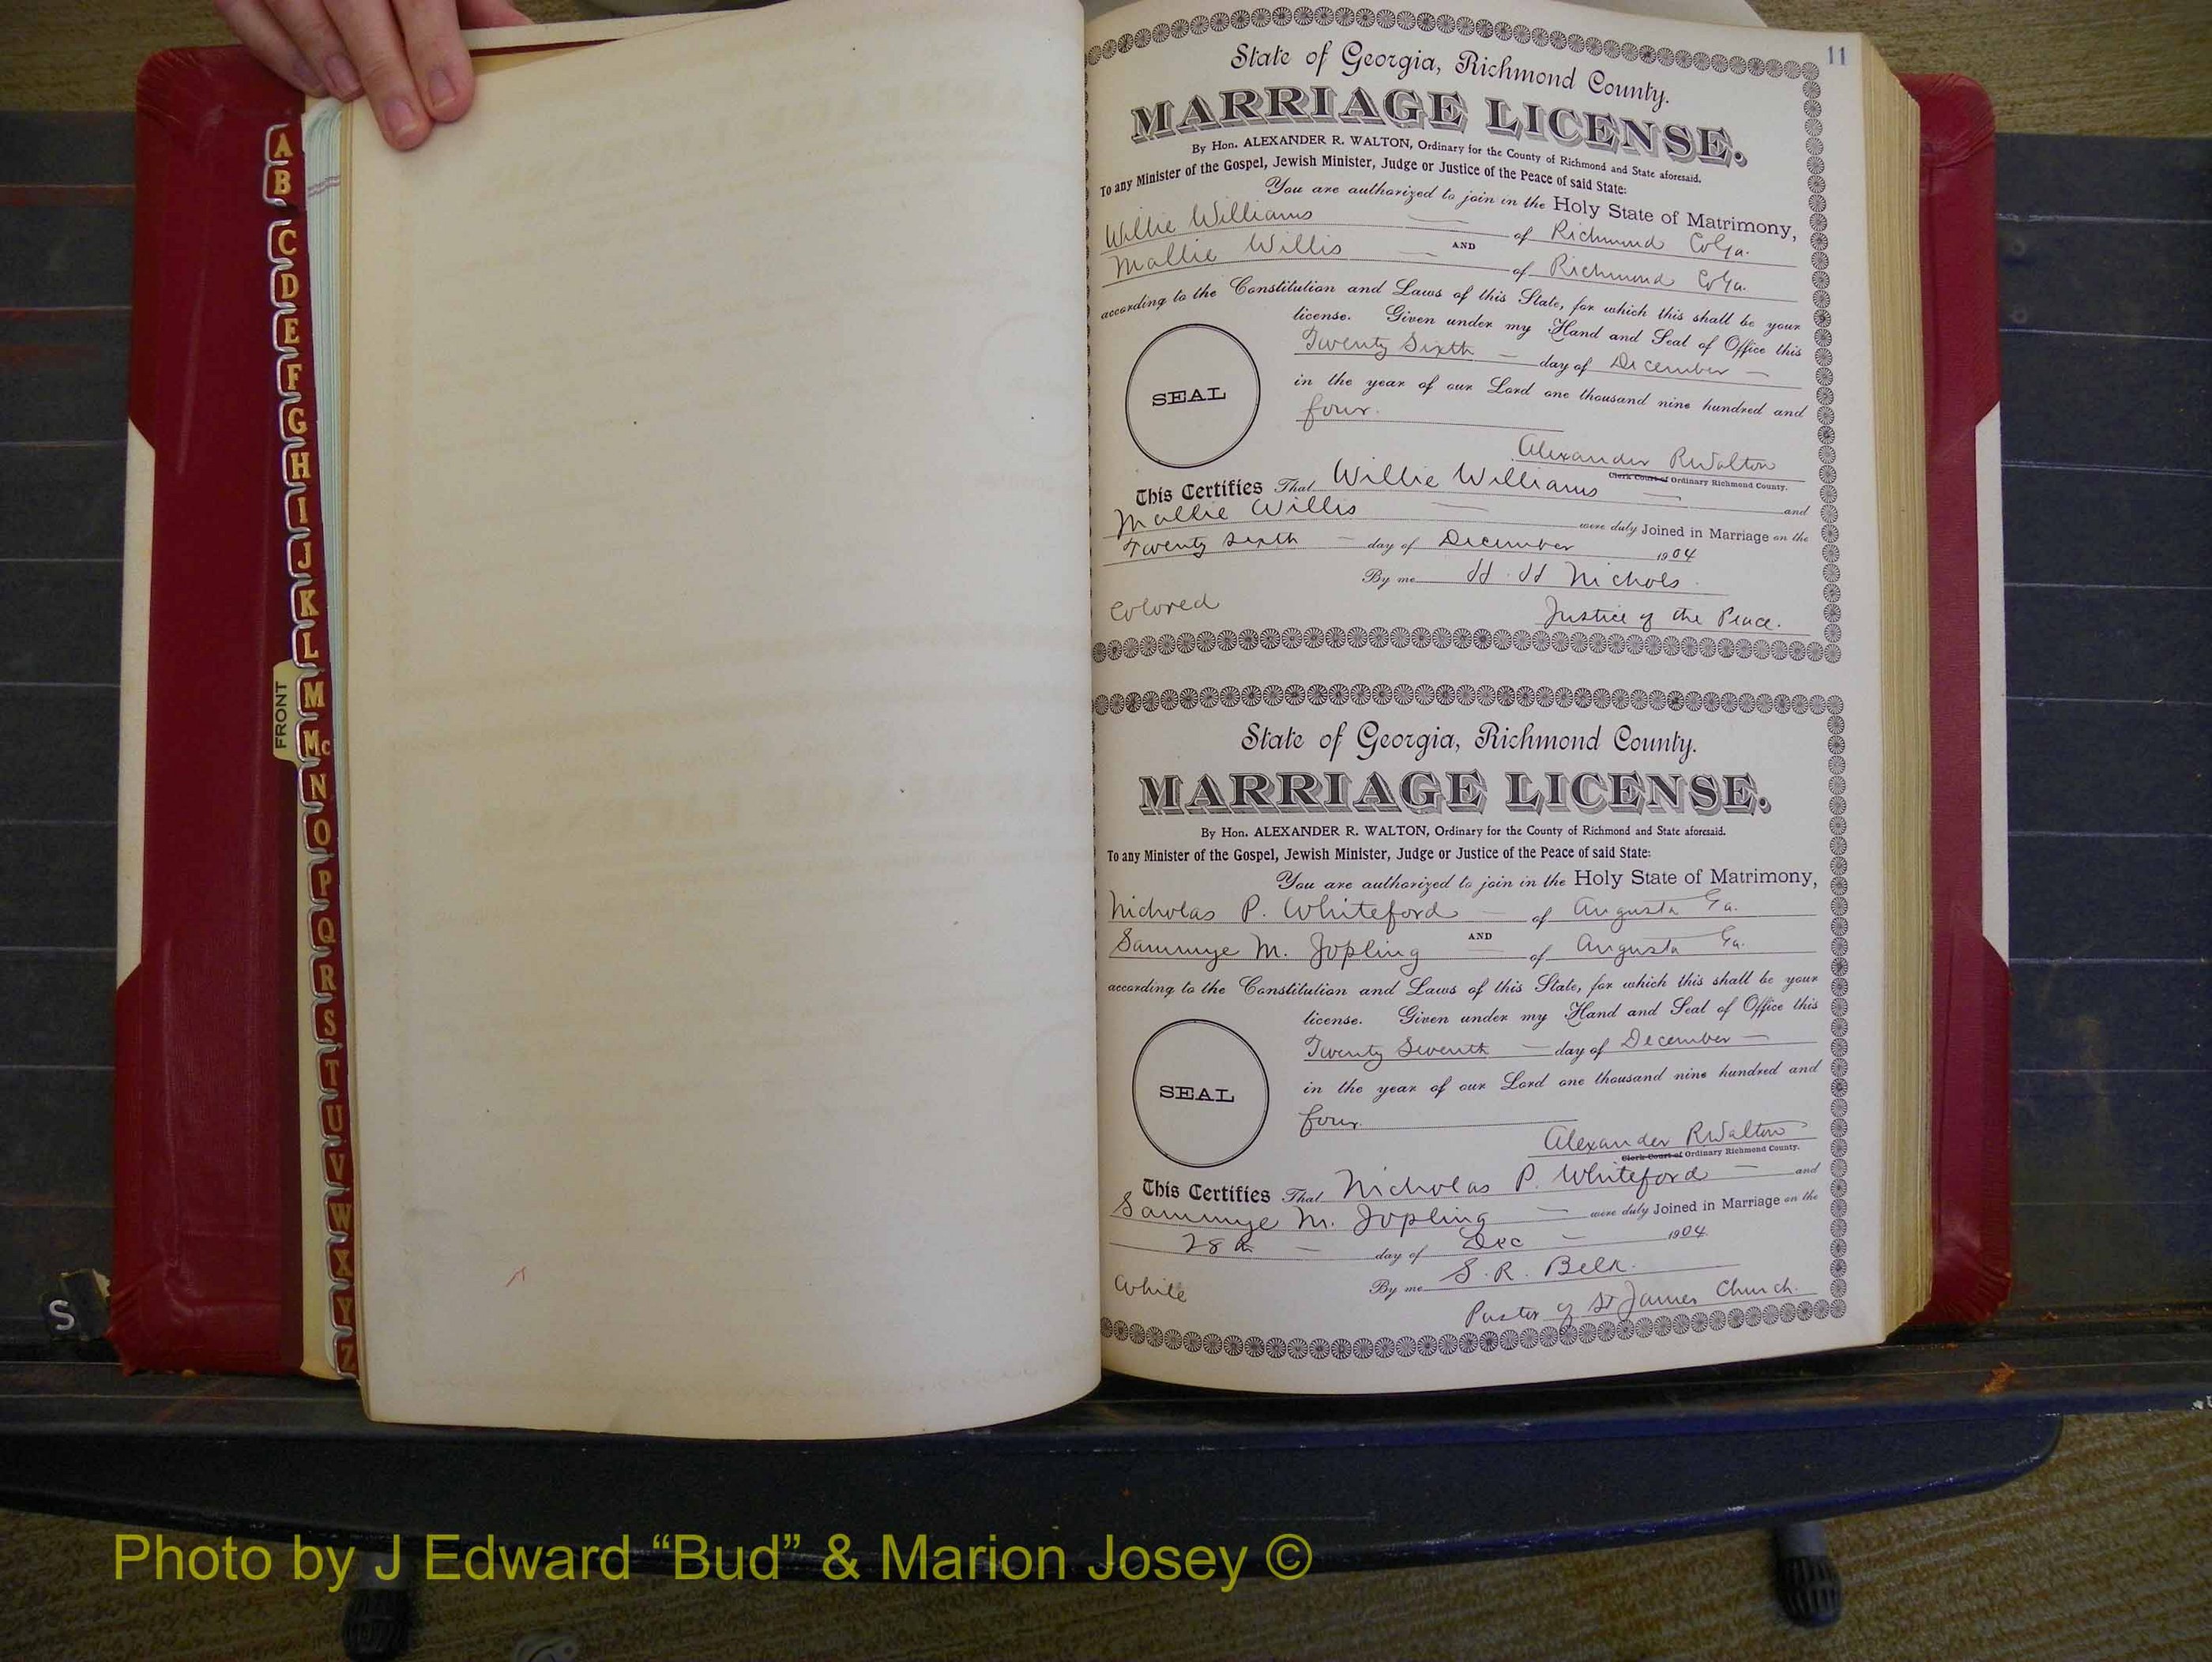 A
B
C
D
E
F
G
H
I
J
K
L
FRONT
M
Mc
N
O
P
Q
R
S
T
U
V
W
X
Y
Z
S
11
State of Georgia, Richmond County.
MARRIAGE LICENSE.
By Hon. ALEXANDER R. WALTON, Ordinary for the County of Richmond and State aforesaid.
To any Minister of the Gospel, Jewish Minister, Judge or Justice of the Peace of said State:
You are authorized to join in the Holy State of Matrimony,
Willie Williams of Richmond Co Ga.
AND
Mallie Willis of Richmond Co Ga.
according to the Constitution and Laws of this State, for which this shall be your
license. Given under my Hand and Seal of Office this
Twenty Sixth day of December
SEAL
in the year of our Lord one thousand nine hundred and
four.
Alexander R Walton
Clerk Court of Ordinary Richmond County.
This Certifies That Willie Williams and
Mallie Willis were duly Joined in Marriage on the
Twenty Sixth day of December 1904
By me H. H Nichols.
Colored Justice of the Peace.
State of Georgia, Richmond County.
MARRIAGE LICENSE.
By Hon. ALEXANDER R. WALTON, Ordinary for the County of Richmond and State aforesaid.
To any Minister of the Gospel, Jewish Minister, Judge or Justice of the Peace of said State:
You are authorized to join in the Holy State of Matrimony,
Nicholas P. Whiteford of Augusta Ga.
AND
Sammye M. Jopling of Augusta Ga.
according to the Constitution and Laws of this State, for which this shall be your
license. Given under my Hand and Seal of Office this
Twenty Seventh day of December
SEAL
in the year of our Lord one thousand nine hundred and
four.
Alexander R Walton
Clerk Court of Ordinary Richmond County.
This Certifies That Nicholas P. Whiteford and
Sammye M. Jopling were duly Joined in Marriage on the
28th day of Dec 1904
By me S. R. Belk.
White Pastor of St James Church.
Photo by J Edward “Bud” & Marion Josey ©